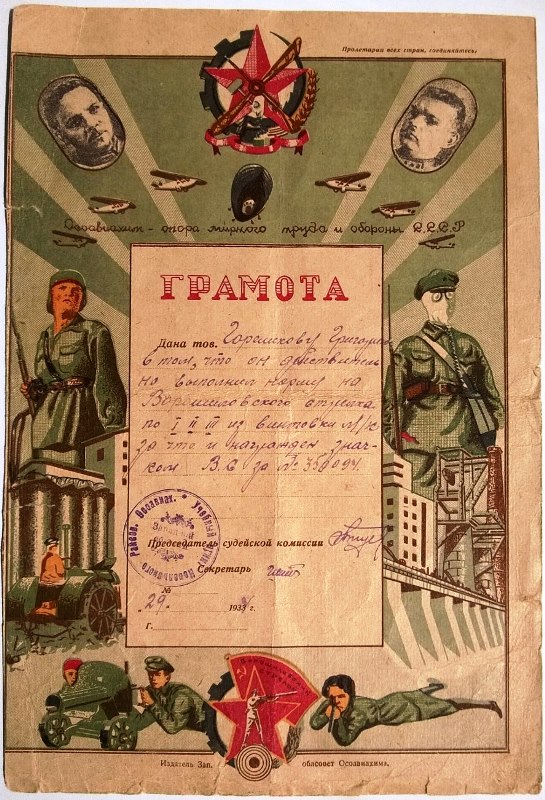 Пролетарии всех стран, соединяйтесь!
Осоавиахим - опора мирного труда и обороны С.С.С.Р
ГРАМОТА
Дана тов. Горшкову Григорию
в том, что он действитель
но выполнил норму на
Ворошиловского стрелка
по I II III из винтовки М/К
за что и награжден знач-
ком В.С за № 358094.
Председатель судейской комиссии
Секретарь
№
"29" 193 г.
Г.
Учебный пункт
Осоавиах.
Издатель Зап. облсовет Осоавиахима.